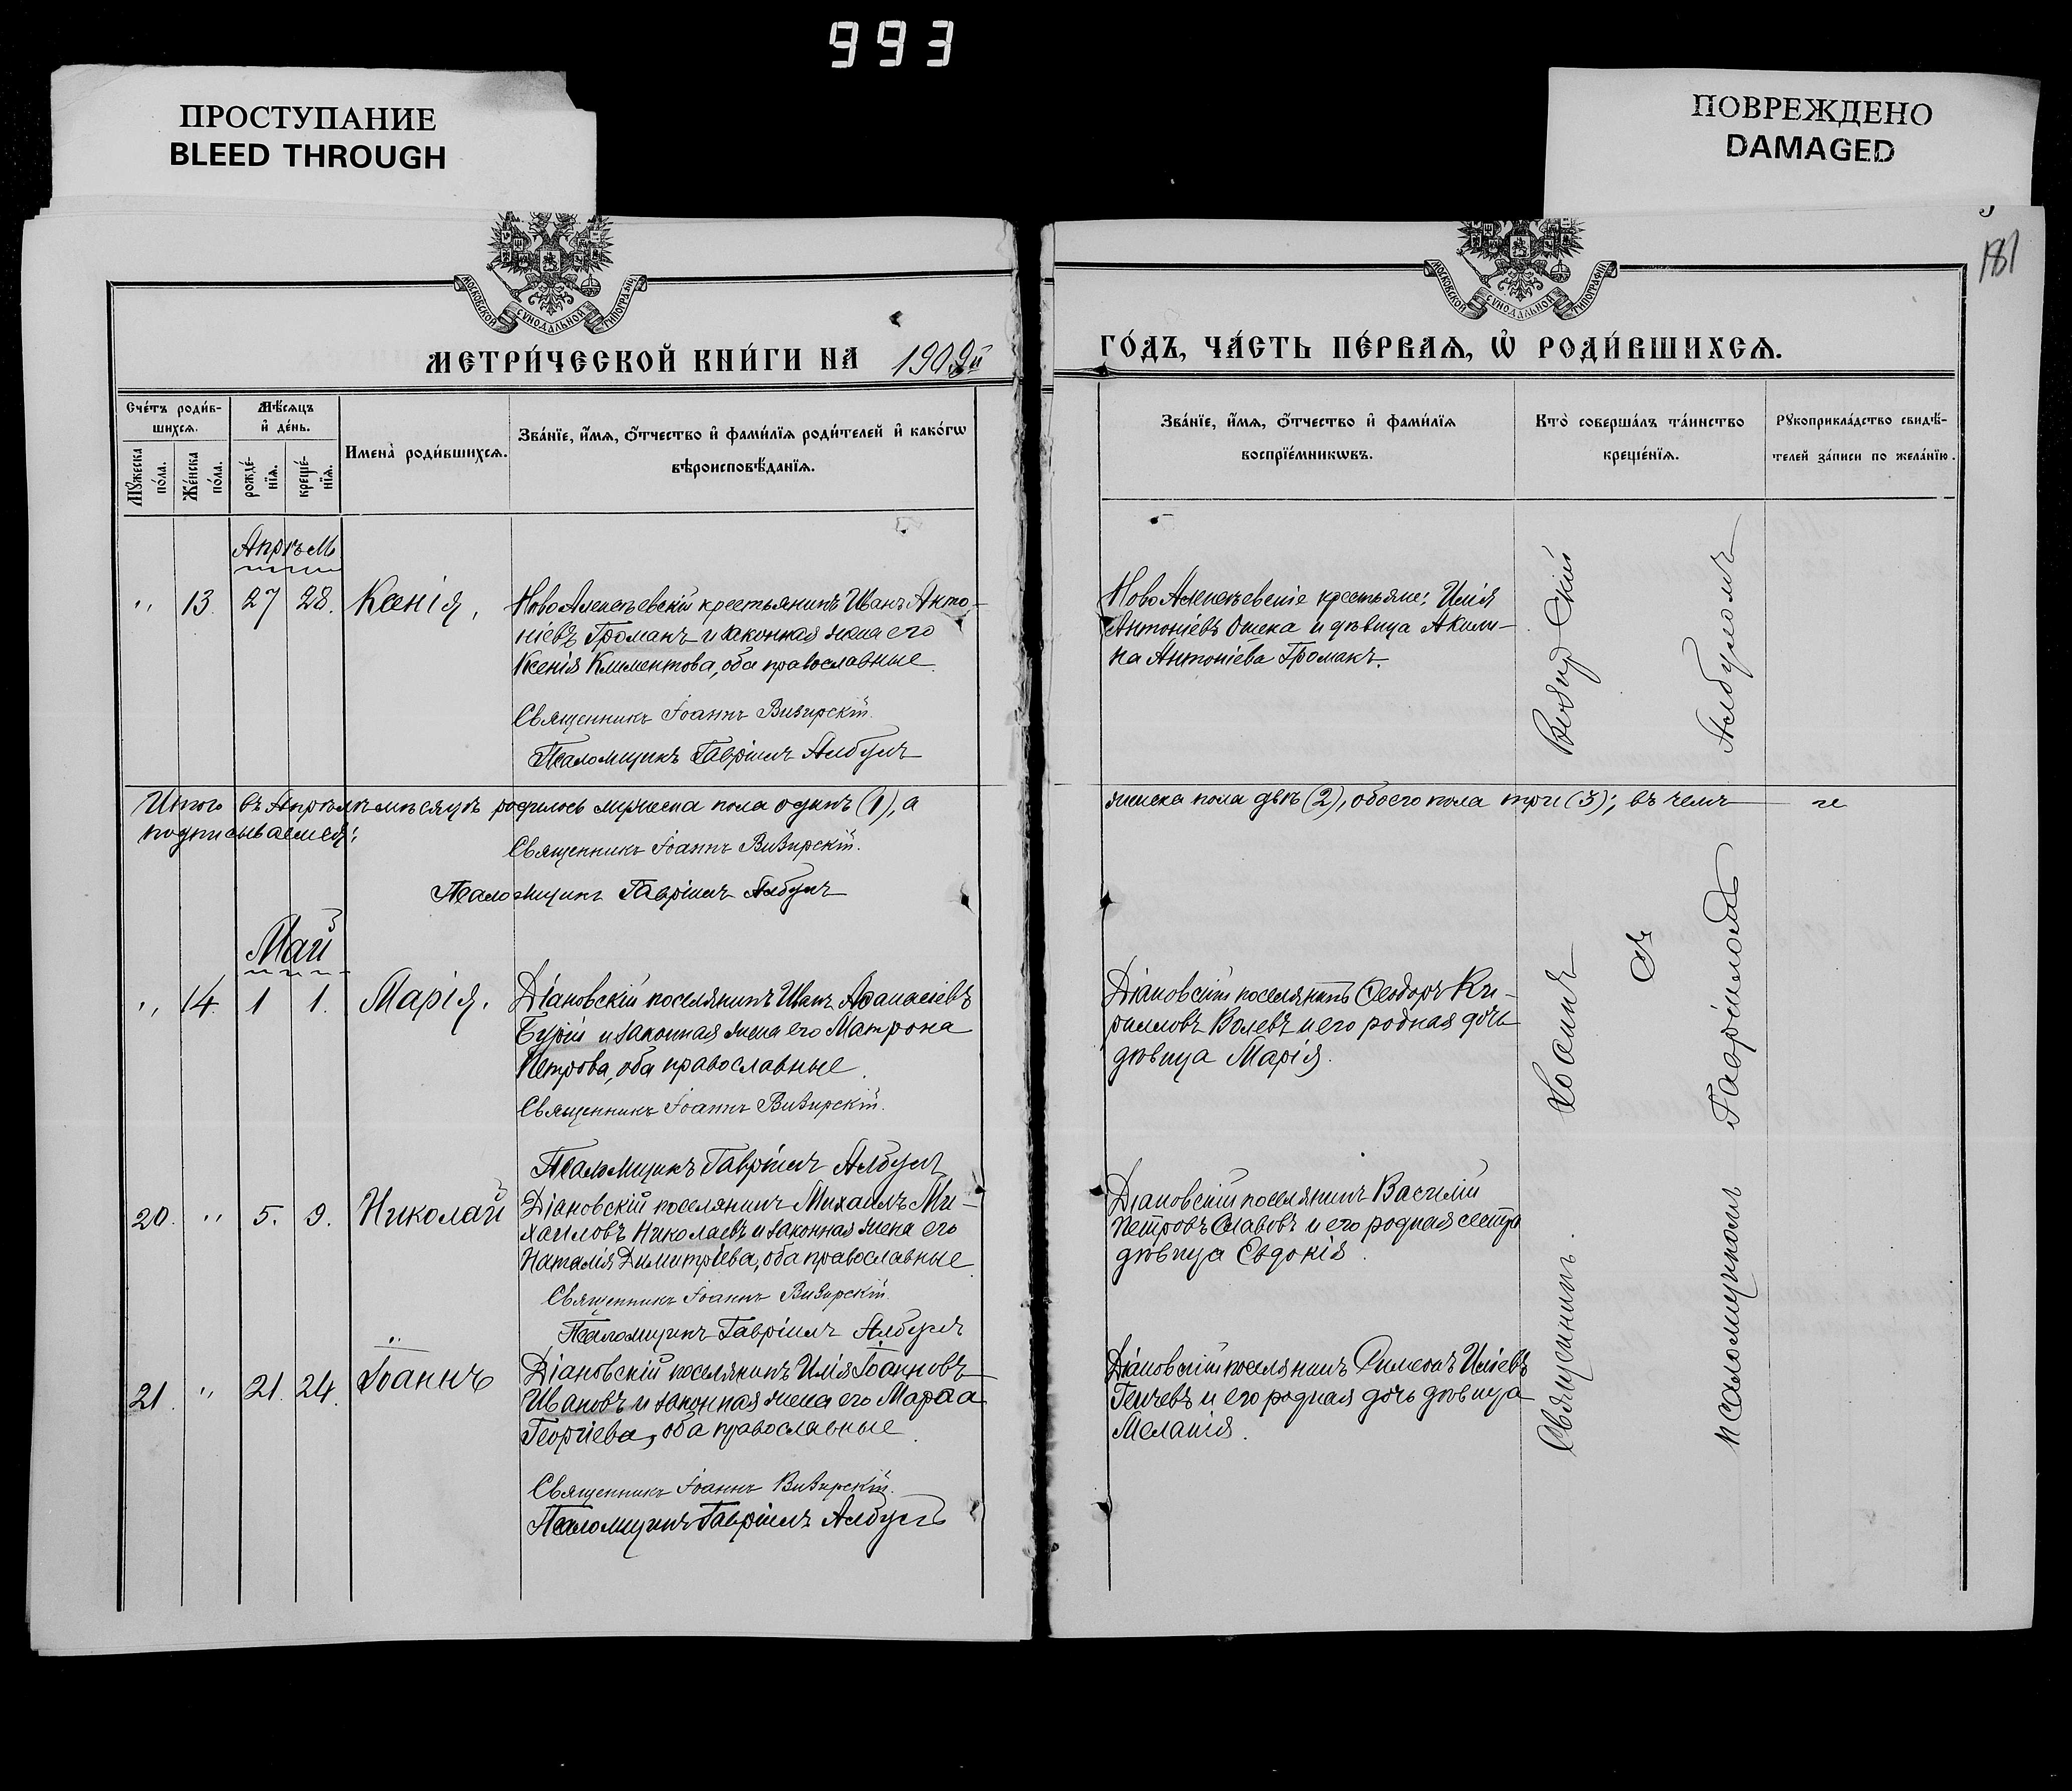 993
ПРОСТУПАНИЕ
BLEED THROUGH
ПОВРЕЖДЕНО
DAMAGED
181
МОСКОВСКОЙ СѴНОДАЛЬНОЙ ТИПОГРАФІИ
МОСКОВСКОЙ СѴНОДАЛЬНОЙ ТИПОГРАФІИ
МЕТРИ́ЧЕСКОЙ КНИ́ГИ НА 1909й
ГО́ДЪ, ЧА́СТЬ ПЕ́РВАѦ, Ѡ҆ РОДИ́ВШИХСѦ.
Сче́тъ роди́в-
шихсѧ.
Мѣ́сѧцъ
и҆ де́нь.
Мꙋ́жеска по́ла.
Же́нска по́ла.
рожде́-нїѧ.
креще́-нїѧ.
Имена̀ роди́вшихсѧ.
Зва́нїе, и҆́мѧ, ѻ҆́тчество и҆ фами́лїѧ роди́телей и҆ како́гѡ
вѣроисповѣ́данїѧ.
Зва́нїе, и҆́мѧ, ѻ҆́тчество и҆ фами́лїѧ
воспрїе́мникѡвъ.
Кто̀ соверша́лъ та́инство
креще́нїѧ.
Рꙋкоприкла́дство свидѣ́-
телей за́писи по жела́нїю.
Апрѣль
" 13. 27 28. Ксенія,
НовоАлексѣевскій крестьянинъ Иванъ Анто-
ніевъ Громакъ и законная жена его
Ксенія Климентова, оба православные.
Священникъ Іоаннъ Визирскій.
Псаломщикъ Гавріилъ Албулъ
НовоАлексѣевскіе крестьяне: Илія
Антоніевъ и дѣвица Акили-
на Антоніева Громакъ.
Итого въ Апрѣлѣ мѣсяцѣ родилось мужеска пола одинъ (1), а
женска пола двѣ (2), обоего пола три (3); въ чемъ и
подписываемся:
Священникъ Іоаннъ Визирскій.
Псаломщикъ Гавріилъ Албулъ
Май
" 14. 1 1. Марія.
Діановскій поселянинъ Иванъ Аѳанасіевъ
и законная жена его Матрона
Петрова, оба православные.
Священникъ Іоаннъ Визирскій.
Псаломщикъ Гавріилъ Албулъ
Діановскій поселянинъ Ѳеодоръ Ки-
рилловъ Волевъ и его родная дочь
дѣвица Марія.
20. " 5. 9. Николай
Діановскій поселянинъ Михаилъ Ми-
хаиловъ Николаевъ и законная жена его
Наталія Димитріева, оба православные
Священникъ Іоаннъ Визирскій.
Псаломщикъ Гавріилъ Албулъ
Діановскій поселянинъ Василій
Петровъ Славовъ и его родная сестра
дѣвица Евдокія.
21. " 21. 24. Іоаннъ
Діановскій поселянинъ Илія Іоанновъ
Ивановъ и законная жена его Марѳа
Георгіева, оба православные.
Священникъ Іоаннъ Визирскій.
Псаломщикъ Гавріилъ Албулъ
Діановскій поселянинъ Симеонъ Иліевъ
Генчевъ и его родная дочь дѣвица
Меланія.
Священникъ Іоаннъ Визирскій
съ
псаломщикомъ Гавріиломъ Албуломъ